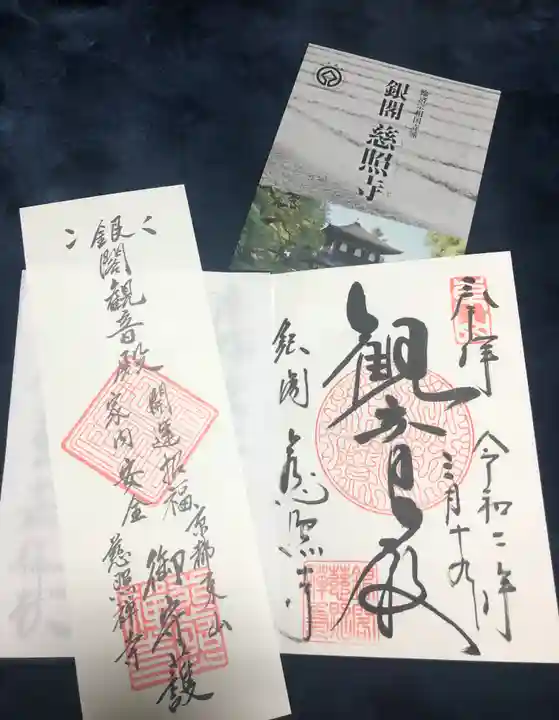 臨済宗相国寺派
銀閣 慈照寺
奉拝
令和二年
三月十九日
観音殿
銀閣 慈照寺
銀閣観音殿
開運招福
家内安全
御守護
京都東山
慈照禅寺